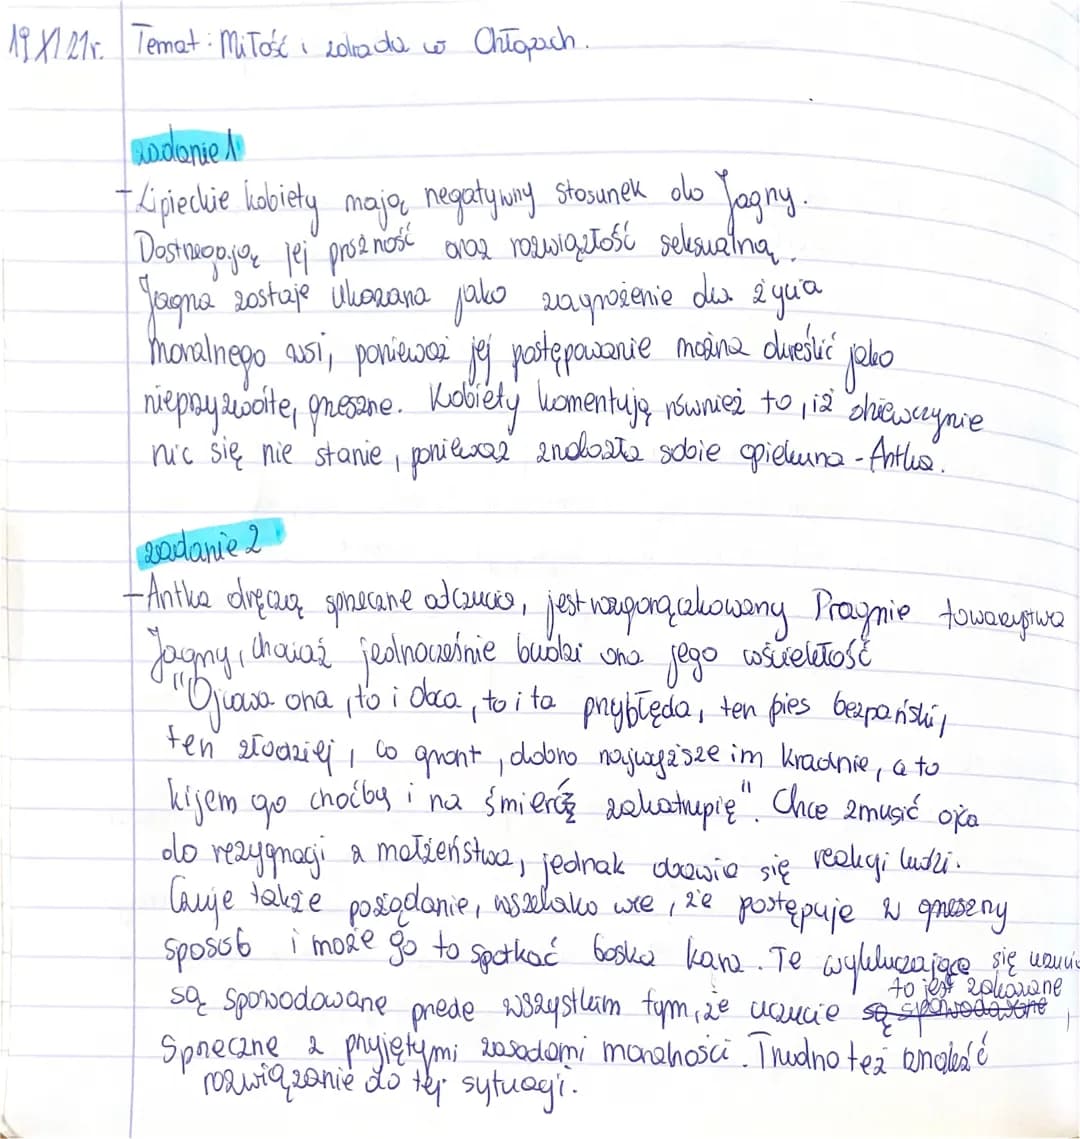 19 XI 21r. Temat: Miłość i zdrada w Chłopach.
zadanie 1
- Lipieckie kobiety mają negatywny stosunek do Jagny.
Dostrzegają jej próżność oraz rozwiązłość seksualną.
Jagna zostaje ukazana jako zagrożenie dla życia
moralnego wsi, ponieważ jej postępowanie można określić jako
nieprzyzwoite, grzeszne. Kobiety komentują również to, iż dziewczynie
nic się nie stanie, ponieważ znalazła sobie opiekuna - Antka.
zadanie 2
- Antka dręczą sprzeczne odczucia, jest rozgorączkowany Pragnie towarzystwa
Jagny, chociaż jednocześnie budzi ona jego wściekłość
"Ojcowa ona, to i obca, to i ta przybłęda, ten pies bezpański,
ten złodziej, co gront, dobro najwyższe im kradnie, a to
kijem go choćby i na śmierć zakatrupię". Chce zmusić ojca
do rezygnacji z małżeństwa, jednak obawia się reakcji ludzi.
Czuje także pożądanie, wszelako wie, że postępuje w grzeszny
sposób i może go to spotkać boska kara. Te wykluczające się uczucia
są spowodowane przede wszystkim tym, że uczucie to jest zakazane,
sprzeczne z przyjętymi zasadami moralności. Trudno też znaleźć
rozwiązanie do tej sytuacji.